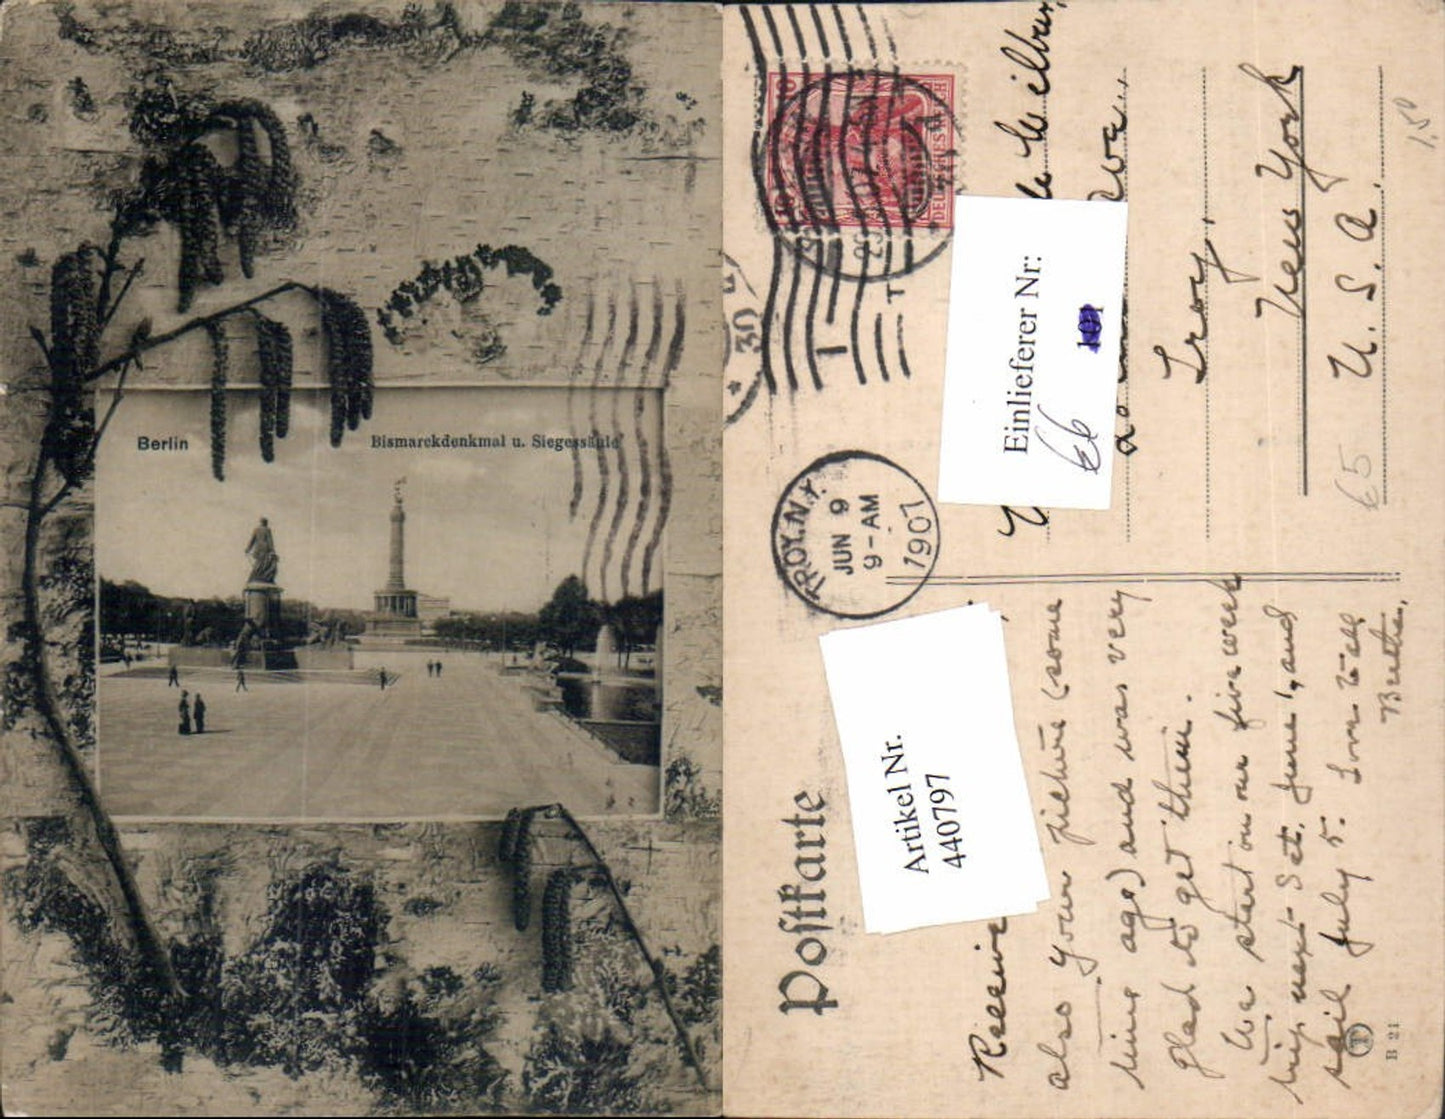 Berlin
Bismarckdenkmal u. Siegessäule
Postkarte
DEUTSCHES REICH
10
30
TROY, N.Y.
JUN 9
9-AM
1907
Einlieferer Nr:
66
Artikel Nr.
440797
Troy,
New York
U. S. A.
65
1,50
also your picture (some
time ago) and was very
glad to get them.
We start on our five week
trip next Sat. June 1, and
sail July 5. Love to all
B 21